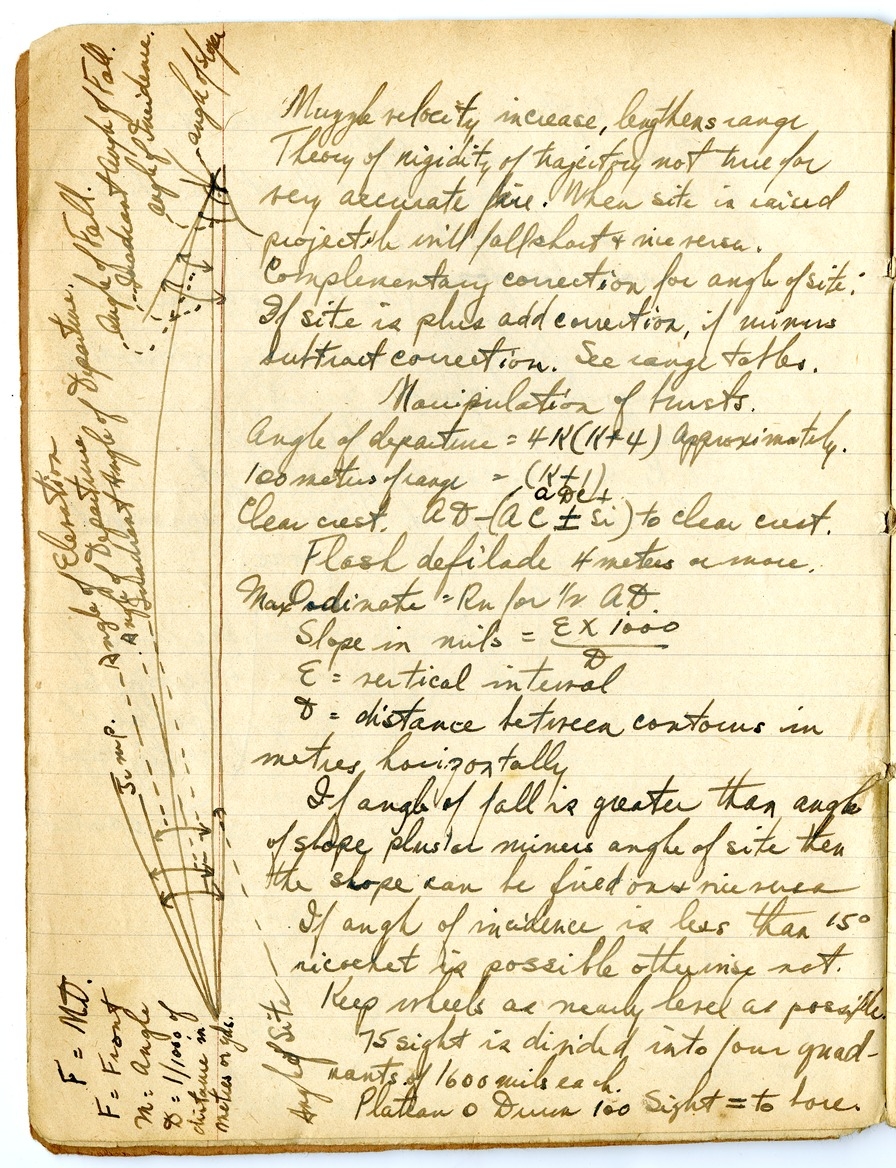 Muzzle velocity increase, lengthens range
Theory of rigidity of trajectory not true for
very accurate fire. When site is raised
projectile will fall short & vice versa.
Complementary correction for angle of site:
If site is plus add correction, if minus
subtract correction. See range tables.
Manipulation of bursts.
Angle of departure = 4K(K+4) Approximately.
100 meters of range = (K+1)
Clear crest. AD-(AC ± Si) to clear crest.
Flash defilade 4 meters or more.
Max Ordinate = Rn for 1/2 AD
Slope in mils = E X 1000
D
E = vertical interval
D = distance between contours in
metres horizontally
If angle of fall is greater than angle
of slope plus or minus angle of site then
the slope can be fired on & vice versa
If angle of incidence is less than 15°
ricochet is possible otherwise not.
Keep wheels as nearly level as possible.
75 sight is divided into four quad-
rants of 1600 mils each.
Plateau 0 Drum 100 Sight = to bore.
F = MD.
F = Front
M = Angle
D = 1/1000 of
distance in
metres or yds.
Angle of Site
Jump.
Angle of Elevation
Angle of Departure
Quadrant Angle of Departure.
Angle of Fall.
Quadrant Angle of Fall.
Angle of Incidence.
angle of slope